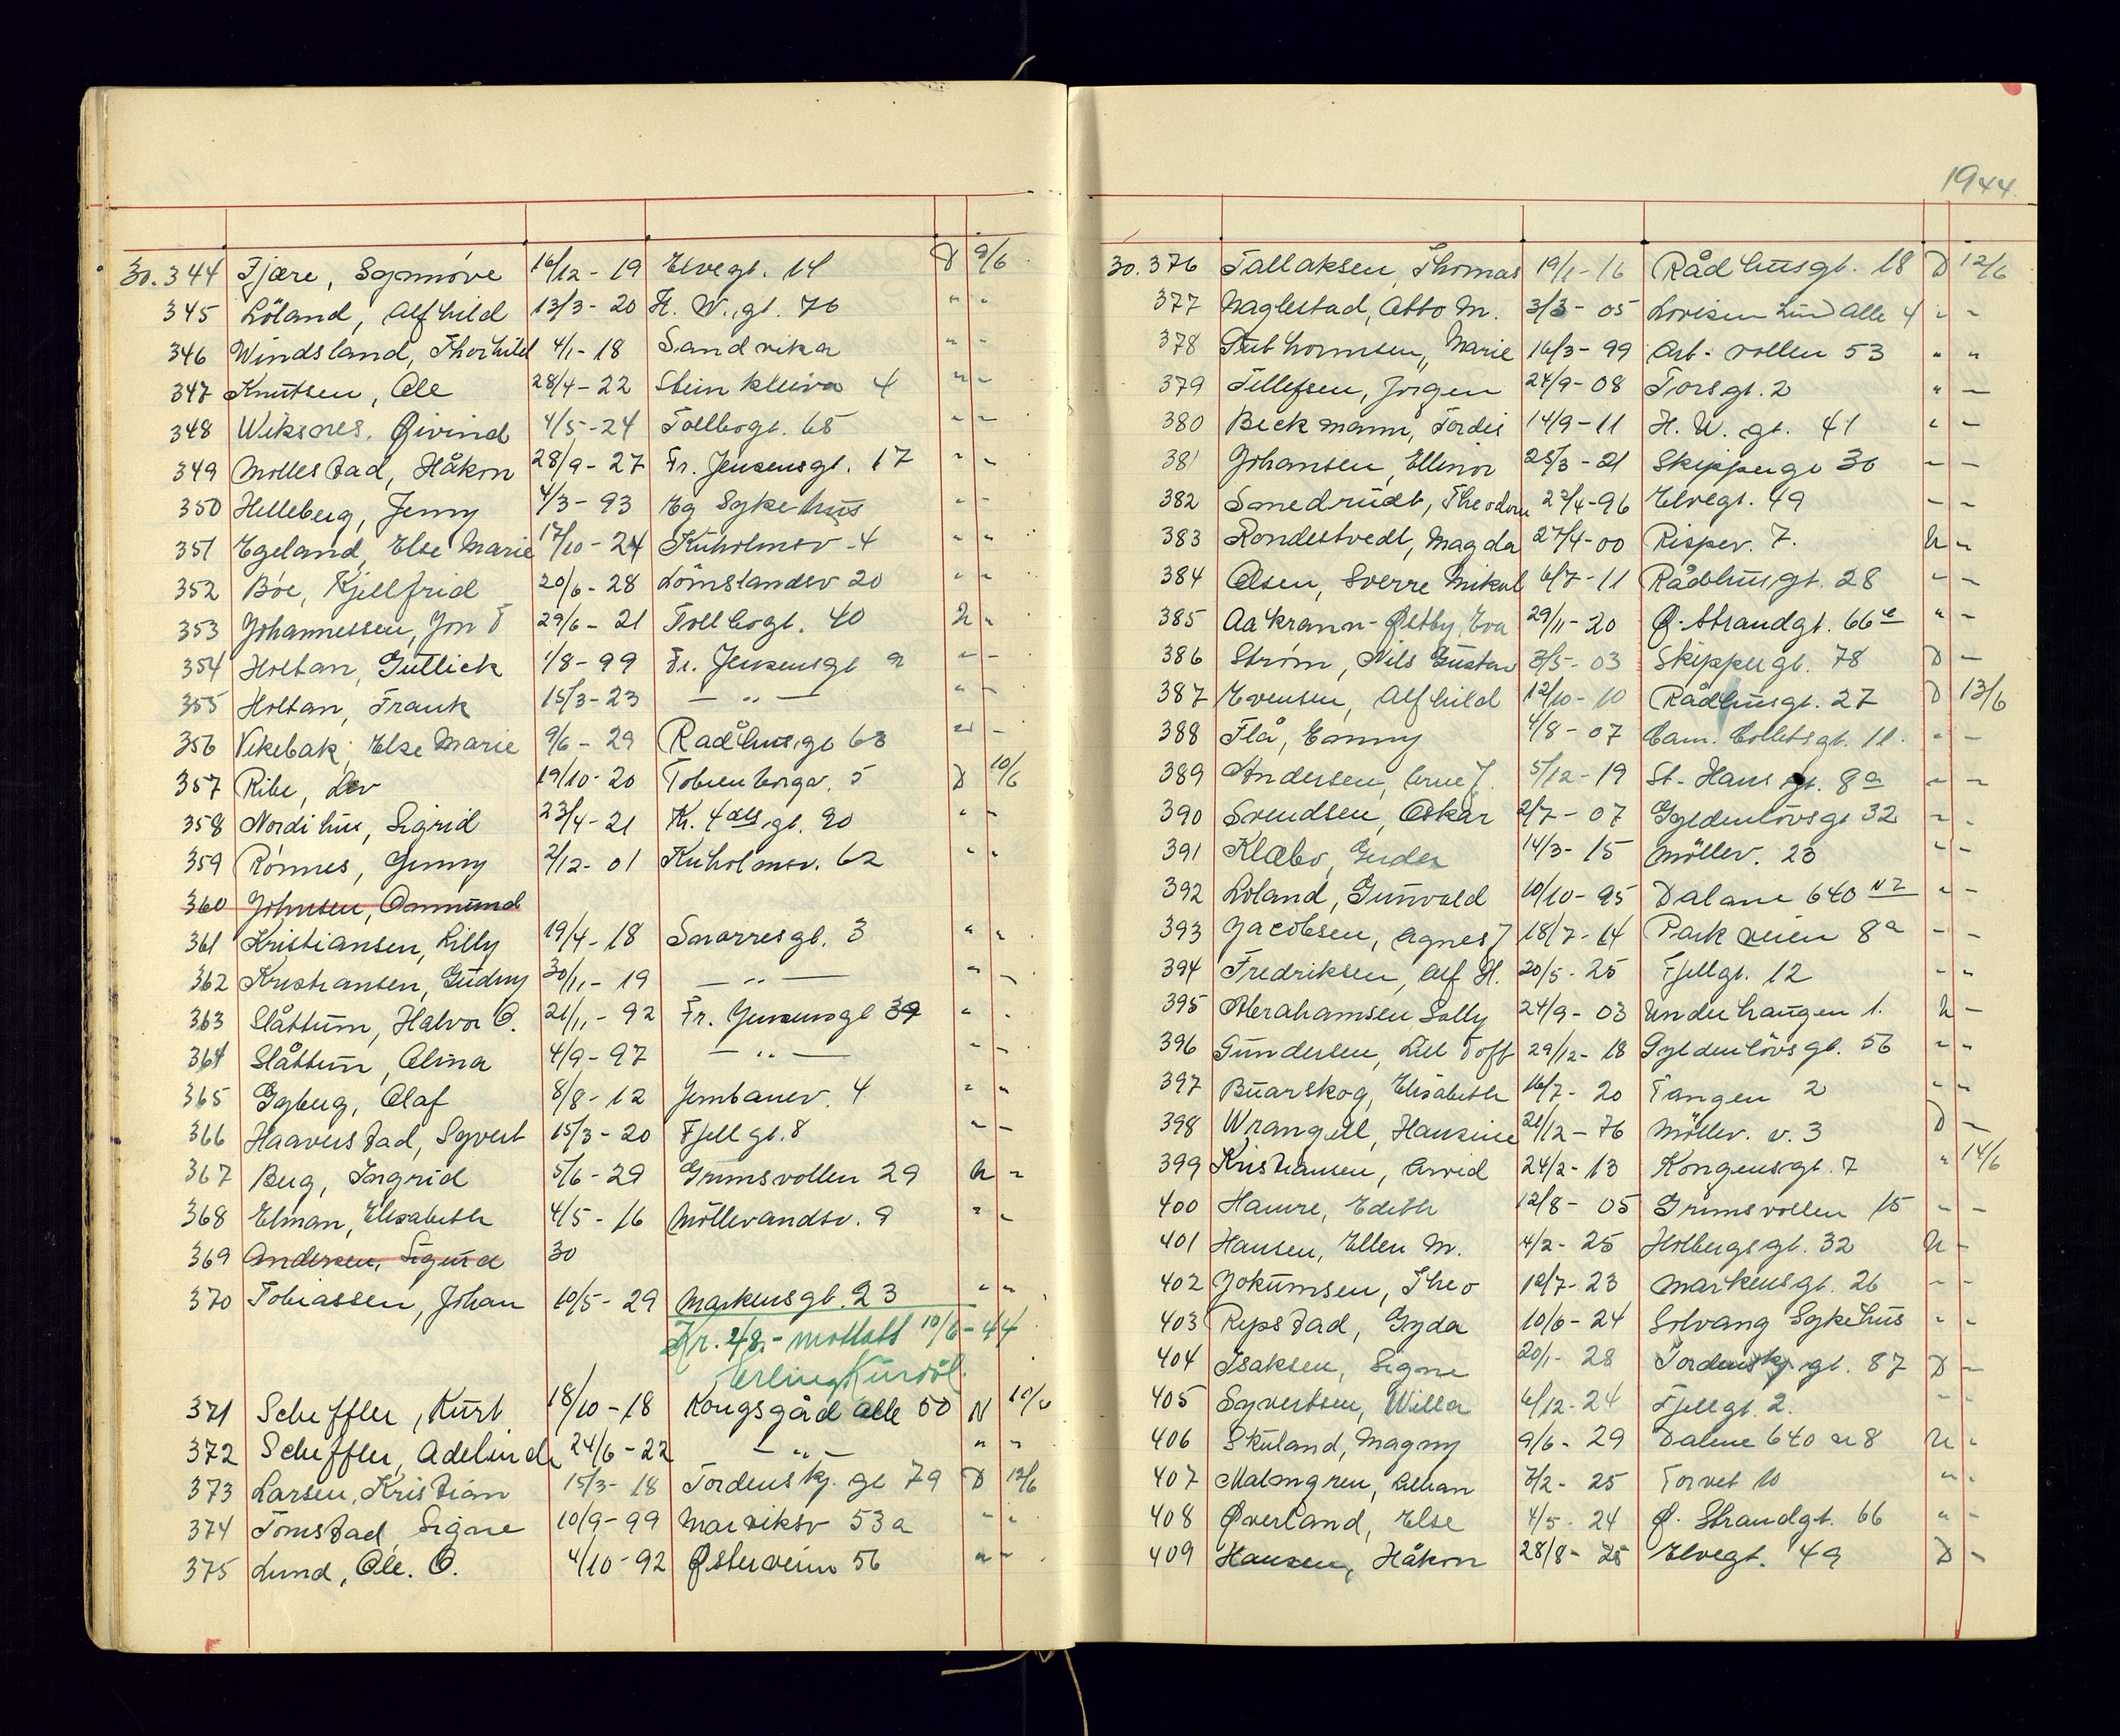 30.344 Fjære, Synnøve 16/12-19 Elvegt. 14 D 9/6
345 Löland, Alfhild 13/3-20 H. W. gt. 76 " "
346 Windsland, Thorhild 4/1-18 Sandvika " "
347 Knutsen, Ole 28/4-22 Steinkleiva 4 " "
348 Wiksnes, Øivind 4/5-24 Tollbogt. 65 " "
349 Mollestad, Håkon 28/9-27 Fr. Jensensgt. 17 " "
350 Helleberg, Jenny 4/3-93 Eg Sykehus " "
351 Egeland, Else Marie 17/10-24 Kuholmsv. 4 " "
352 Böe, Kjellfrid 20/6-28 Lömslandsv 20 " "
353 Johannessen, Jon T 29/6-21 Tollbogt. 40 N "
354 Holtan, Gullick 1/8-99 Fr. Jensensgt 9 " "
355 Holtan, Frank 15/3-23 — " — " "
356 Vikebak, Else Marie 9/6-29 Rådhusgt 63 " "
357 Ribe, Liv 19/10-20 Tobienborgv. 5 D 10/6
358 Nordihus, Sigrid 23/4-21 Kr. 4des gt. 90 " "
359 Rönnes, Jenny 2/12-01 Kuholmsv. 62 " "
360 Johnsen, Osmund
361 Kristiansen, Lilly 19/4-18 Snorresgt. 3 " "
362 Kristiansen, Gudny 30/11-19 — " — " "
363 Slåttum, Halvor O. 21/11-92 Fr. Jensensgt 39 " "
364 Slåttum, Alma 4/9-97 — " — " "
365 Gyberg, Olaf 8/8-12 Jernbanev. 4 " "
366 Haaverstad, Syvert 15/3-20 Fjellgt. 8 " "
367 Berg, Ingrid 5/6-29 Grimsvollen 29 N "
368 Elman, Elisabeth 4/5-16 Möllevandsv. 9 " "
369 Andersen, Sigurd 30
370 Tobiassen, Johan 10/5-29 Markensgt. 23 " "
Kr. 48.- mottatt 10/6-44
Erling
371 Scheffler, Kurt 18/10-18 Kongsgård alle 50 N 10/6
372 Scheffler, Adelinde 24/6-22 — " — " "
373 Larsen, Kristian 15/3-18 Tordenskj. gt 79 D 12/6
374 Tomstad, Signe 10/9-99 Marviksv 53a " "
375 Lund, Ole. O. 4/10-92 Østerveien 56 " "
1944.
30.376 Tallaksen, Thomas 19/1-16 Rådhusgt. 18 D 12/6
377 Naglestad, Otto M. 3/3-05 Lovisen Lund alle 4 " "
378 Marie 16/3-99 Art. vollen 53 " "
379 Tellefsen, Jørgen 24/9-08 Torsgt. 2 " "
380 Beckmann, Tordis 14/9-11 H. W. gt. 41 " "
381 Johansen, Ellinor 25/3-21 Skippergt 30 " "
382 Smedrudt, Theodora 22/4-96 Elvegt. 49 " "
383 Rondestvedt, Magda 27/4-00 Rispev. 7. N "
384 Olsen, Sverre Mikal 6/7-11 Rådhusgt. 28 " "
385 Aakrann-Østby, Eva 29/11-20 Ø. Strandgt. 66c " "
386 Strøm, Nils Gustav 3/5-03 Skippergt. 78 D "
387 Evensen, Alfhild 12/10-10 Rådhusgt. 27 D 13/6
388 Flå, Emmy 4/8-07 Cam. Colletsgt. 11. " "
389 Andersen, Arne J. 5/12-19 St. Hans gt. 8a " "
390 Svendsen, Oskar 2/7-07 Gyldenlövsgt 32 " "
391 Klæbo, Gerda 14/3-15 Möllev. 23 " "
392 Loland, Gunvald 10/10-95 Dalane 640 N2 " "
393 Jacobsen, Agnes J 18/7-14 Parkveien 8a " "
394 Fredriksen, Alf H. 20/5-25 Fjellgt. 12 " "
395 Abrahamsen, Solly 24/9-03 Underhaugen 1. N "
396 Gundersen, Lill Toft 29/12-18 Gyldenlövsgt. 56 " "
397 Buarskog, Elisabeth 16/7-20 Tangen 2 " "
398 Wrangell, Hansine 21/12-76 Möllev. v. 3 D "
399 Kristiansen, Arvid 24/2-13 Kongensgt. 7 " 14/6
400 Hamre, Edith 12/8-05 Grimsvollen 15 " "
401 Hansen, Ellen M. 4/2-25 Holbergsgt. 32 N "
402 Jokumsen, Theo 12/7-23 Markensgt. 26 " "
403 Repstad, Gyda 10/6-24 Solvang Sykehus " "
404 Isaksen, Signe 20/1-28 Tordenskj.gt. 87 D "
405 Syvertsen, Willa 6/12-24 Fjellgt. 2. " "
406 Skuland, Magny 9/6-29 Dalene 640 nr 8 N "
407 Malmgren, Lillian 7/2-25 Torvet 10 " "
408 Øverland, Else 4/5-24 Ø. Strandgt. 66 " "
409 Hansen, Håkon 28/8-25 Elvegt. 49 D "